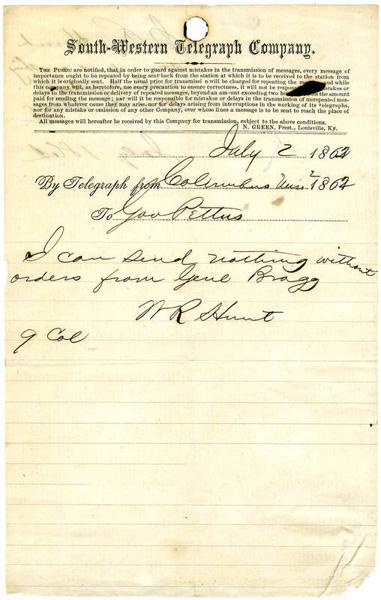 South-Western Telegraph Company.
THE PUBLIC are notified, that in order to guard against mistakes in the transmission of messages, every message of
importance ought to be repeated by being sent back from the station at which it is to be received to the station from
which it is originally sent. Half the usual price for transmission will be charged for repeating the message, and while
this company will, as heretofore, use every precaution to ensure correctness, it will not be responsible for mistakes or
delays in the transmission or delivery of repeated messages, beyond an amount exceeding two hundred times the amount
paid for sending the message; nor will it be responsible for mistakes or delays in the transmission of unrepeated messages
from whatever cause they may arise, nor for delays arising from interruptions in the working of its Telegraphs,
nor for any mistake or omission of any other Company, over whose lines a message is to be sent to reach the place of
destination.
All messages will hereafter be received by this Company for transmission, subject to the above conditions.
N. GREEN, Prest., Louisville, Ky.
July 2 1862
By Telegraph from Columbus Miss 2 1862
To Gov Pettus
I can send nothing without
orders from Genl Bragg
W R Hunt
9 Col